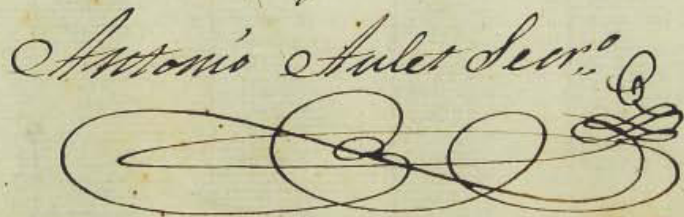 Antonio Aulet Secr.º